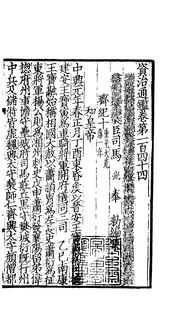 資治通鑑卷第一百四十四
臣司馬光奉敕編集
齊紀十
和皇帝
中興元年春正月丁酉東昏侯以晉安王寶義為司徒
建安王寶寅為車騎將軍開府儀同三司 乙巳南康
王寶融始稱相國大赦以蕭穎胄為左長史蕭衍為征
東將軍楊公則為湘州刺史戊申蕭衍發襄陽留弟偉
總府州事憺守壘城府司馬莊丘黑守樊城衍既行州
中兵及儲偫皆虛魏興太守裴師仁齊興太守顏僧都